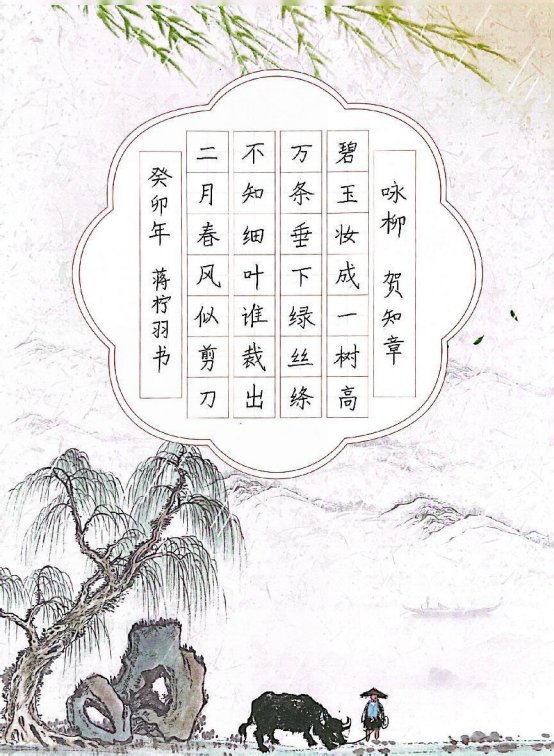 咏柳 贺知章
碧玉妆成一树高
万条垂下绿丝绦
不知细叶谁裁出
二月春风似剪刀
癸卯年 蒋柠羽书